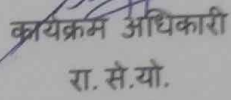 कार्यक्रम अधिकारी
रा. से.यो.